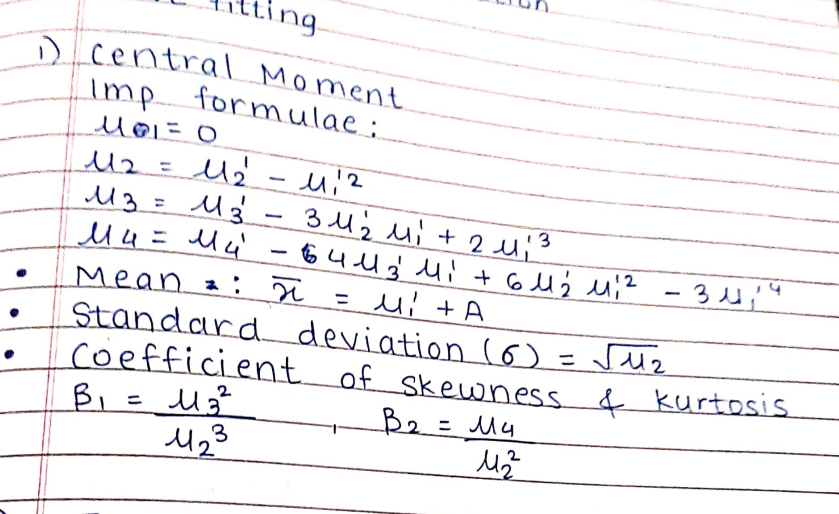 fitting
1) Central Moment
Imp formulae :
μ1 = 0
μ2 = μ2' - μ1'²
μ3 = μ3' - 3μ2' μ1' + 2μ1'³
μ4 = μ4' - 4μ3' μ1' + 6μ2' μ1'² - 3μ1'⁴
• Mean : x̄ = μ1' + A
• Standard deviation (σ) = √μ2
• Coefficient of skewness & kurtosis
β1 = μ3²/μ2³ , β2 = μ4/μ2²